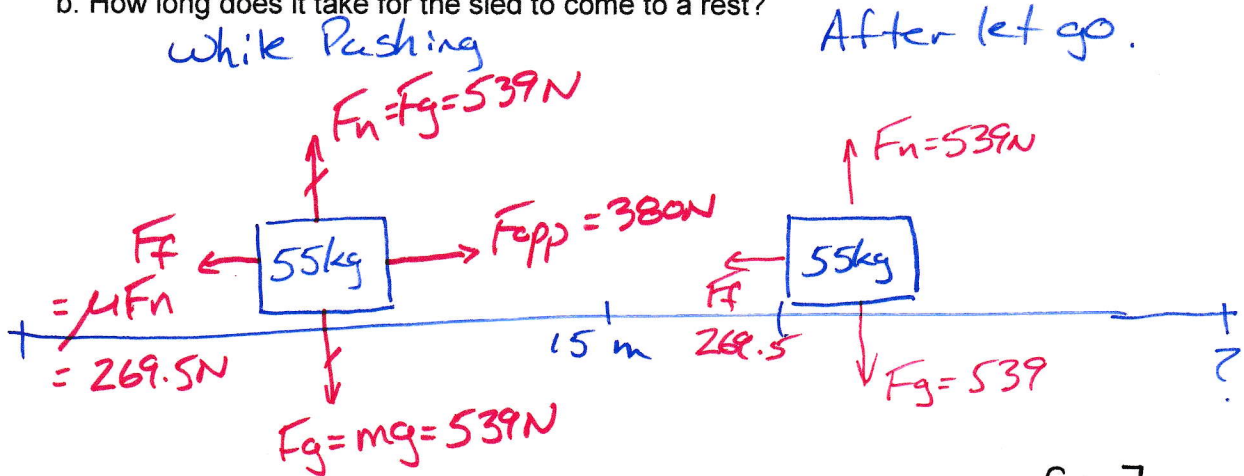 b. How long does it take for the sled to come to a rest?
While Pushing
After let go.
Fn=Fg=539N
Fn=539N
Ff
= μFn
= 269.5N
55kg
Fapp = 380N
55kg
Ff
269.5
15 m
?
Fg=mg=539N
Fg=539